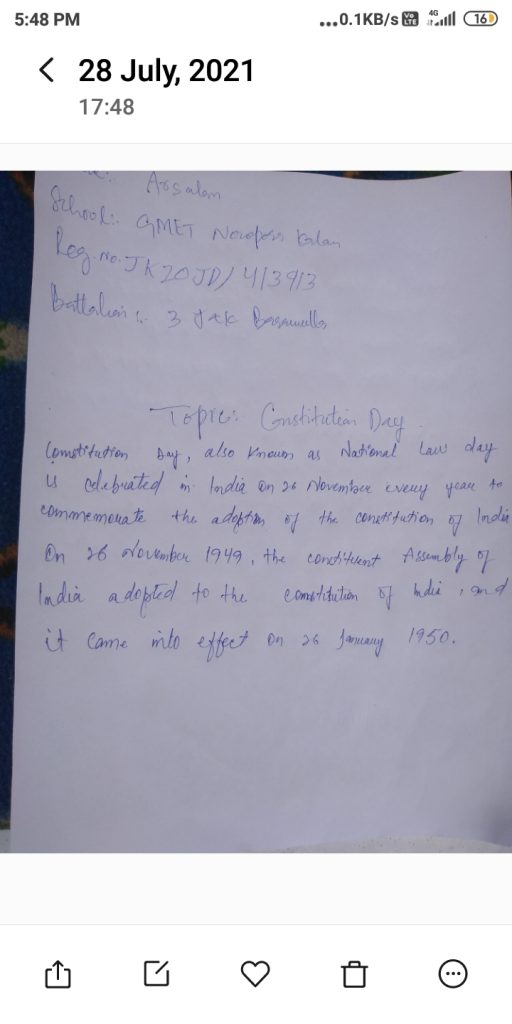 5:48 PM
...0.1KB/s Vo LTE 4G 16
28 July, 2021
17:48
Arsalan
School:. GMET Kalan
Reg. No. JK20JD/413913
Battalion :. 3 J&K Baramulla
Topic: Constitution Day
Constitution Day, also known as National Law day
is celebrated in India on 26 November every year to
commemorate the adoption of the constitution of India
On 26 November 1949, the constituent Assembly of
India adopted to the constitution of India, and
it came into effect on 26 January 1950.